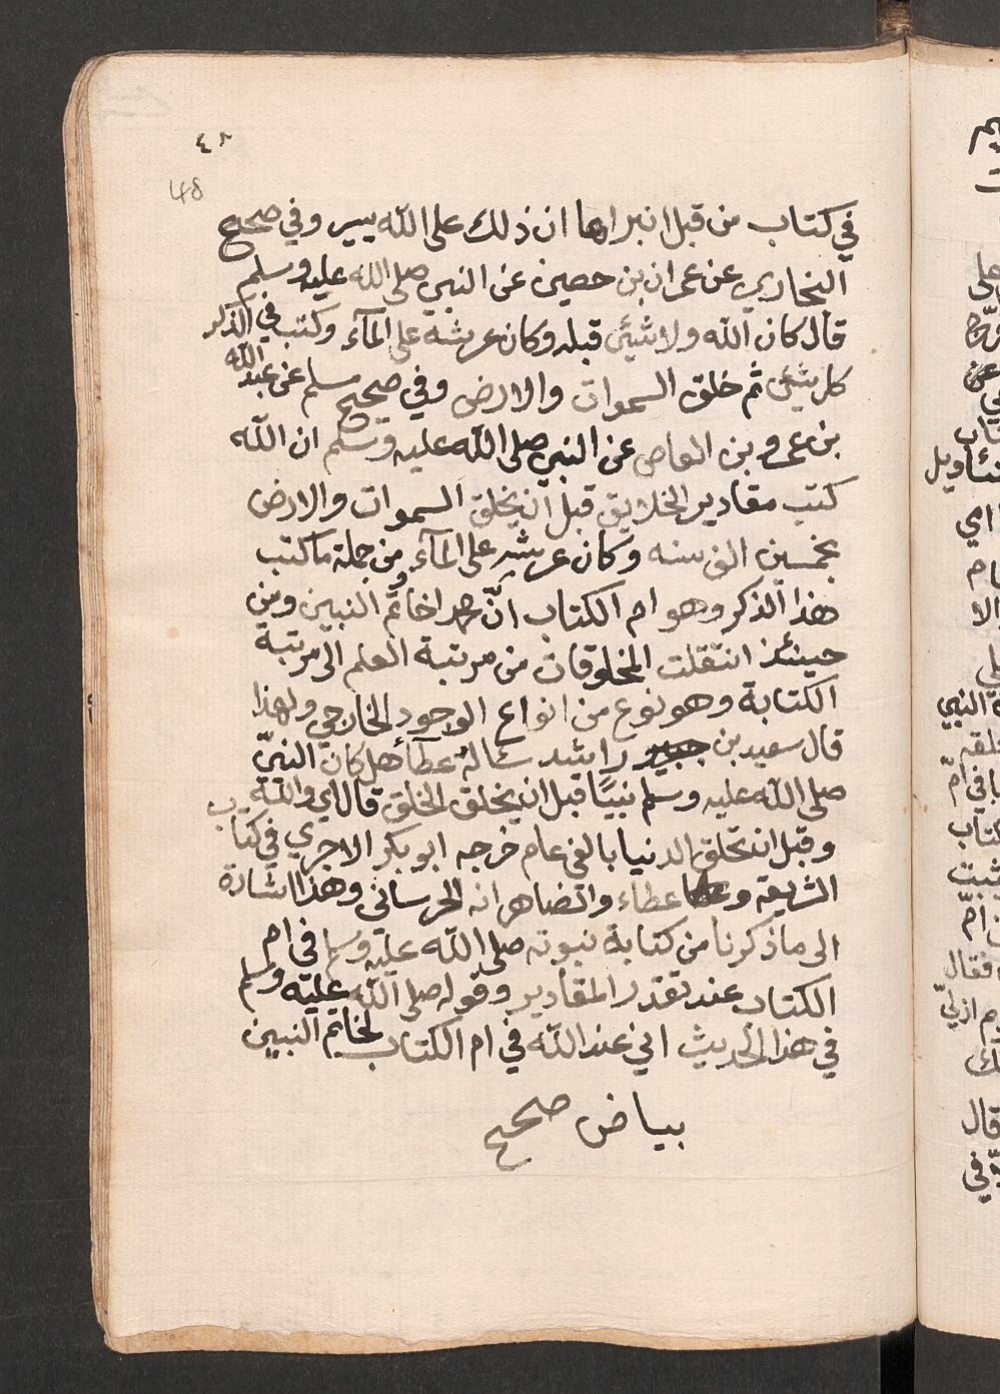 ٤٨
48
في كتاب من قبل ان نبراها ان ذلك على الله يسير وفي صحيح
البخاري عن عمران بن حصين عن النبي صلى الله عليه وسلم
قال كان الله ولا شيئ قبله وكان عرشه على المآء وكتب في الذكر
كل شيئ ثم خلق السموات والارض وفي صحيح مسلم عن عبد الله
بن عمرو بن العاص عن النبي صلى الله عليه وسلم ان الله
كتب مقادير الخلايق قبل ان يخلق السموات والارض
بخمسين الف سنه وكان عرشه على المآء ومن جملة ما كتب
هذا الذكر وهو ام الكتاب انّ محمدا خاتم النبين ومن
حينئذ انتقلت المخلوقات من مرتبة العلم الى مرتبة
الكتابة وهو نوع من انواع الوجود الخارجي ولهذا
قال سعيد بن راشد سالت عطآء هل كان النبيّ
صلى الله عليه وسلم نبيًا قبل ان يخلق الخلق قال اي والله
وقبل ان تخلق الدنيا بالفي عام خرجه ابو بكر الاجري في كتاب
الشريعه وعطاء واتضاهر انه الخرساني وهذا اشارة
الى ما ذكرنا من كتابة نبوته صلى الله عليه وسلم في ام
الكتاب عند تقدر المقادير وقوله صلى الله عليه وسلم
في هذا الحديث اني عند الله في ام الكتاب لخاتم النبين
بياض صحيح